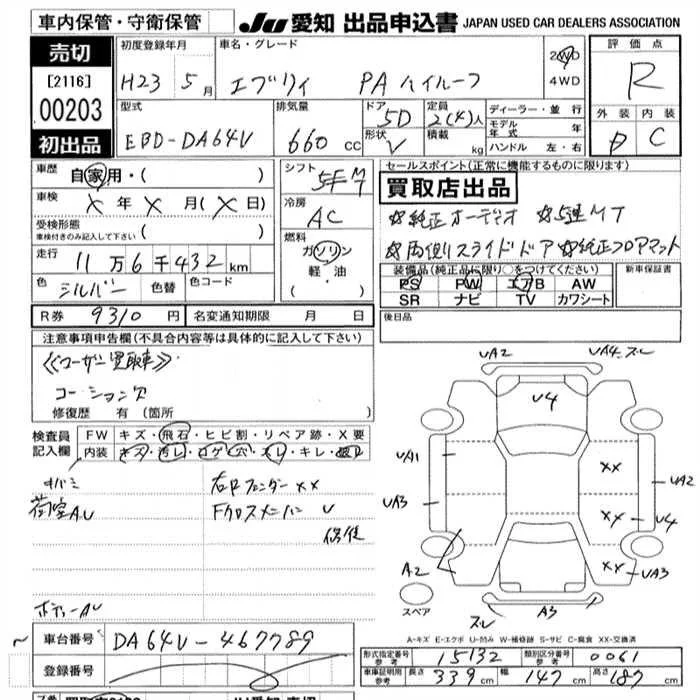 車内保管・守衛保管
JU 愛知 出品申込書 JAPAN USED CAR DEALERS ASSOCIATION
売切
[2116]
00203
初出品
初度登録年月
H23 5月
車名・グレード
エブリイ PA ハイルーフ
2WD
4WD
評価点
R
型式
EBD-DA64V
排気量
660 cc
ドア
5D
形状
V
定員
2(4)人
積載
kg
ディーラー・並行
モデル年式 年
ハンドル 左・右
外装 内装
D C
車歴
自家用・( )
車検
X 年 X 月(X 日)
受検形態
車検付きのみ記入して下さい ( )
走行
11万6千432km
色
シルバー
色替
色コード
シフト
5F M
冷房
AC
燃料
ガソリン
軽・油
・( )
セールスポイント(正常に機能するものに限ります)
買取店出品
☆純正オーデオ ☆5速MT
☆両側スライドドア ☆純正フロアマット
装備品(純正品に限り○をつけてください)
PS PW エアB AW
SR ナビ TV カワシート
新車保証書
後日品
R券 9310円
名変通知期限 月 日
注意事項申告欄(不具合内容等は具体的に記入して下さい)
《ユーザー買取車》
コーション欠
修復歴 有(箇所 )
検査員
記入欄
FW キズ・飛石・ヒビ割・リペア跡・X要
内装 キズ・汚レ・コゲ・穴・スレ・キレ・破レ
荷室AU
右Fフェンダー XX
Fクロスメンバー U
修復
ボディーAU
UA2
UA4 スレ
U4
UA1
UA3
A2
XX
XX
XX
UA2
U4
UA3
スペア
スレ
A3
A-キズ E-エクボ U-凹み W-補修跡 S-サビ C-腐食 XX-交換済
車台番号
DA64V-467789
登録番号
形式指定番号
参考
15132
類別区分番号
参考
0061
車庫証明用
参考
長さ 339cm
幅 147cm
高さ 187cm